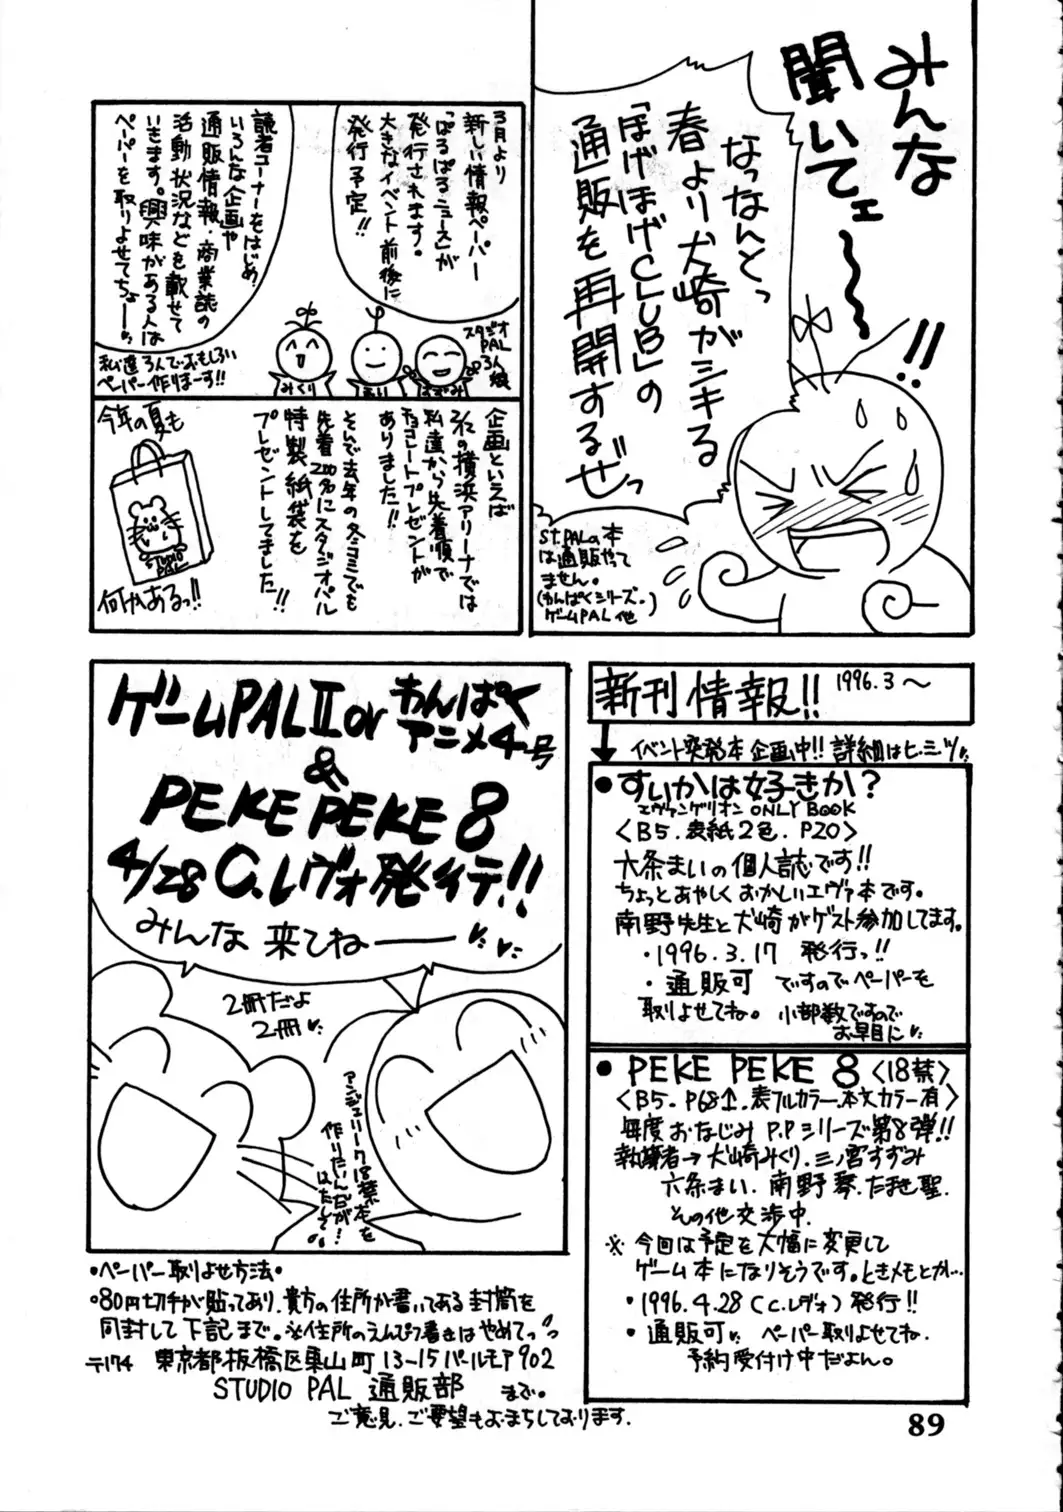 みんな
聞いてェ〜〜
!!
なっなんとっ
春より犬崎がシキる
「ほげほげCLUB」の
通販を再開するぜっ
ST.PALの本
は通販やって
ません。
(わんぱくシリーズ。)
ゲームPAL他
3月より
新しい情報ペーパー
「ぱろぱろニュース」が
発行されます。
大きなイベント前後に
発行予定!!
読者コーナーをはじめ、
いろんな企画や
通販情報・商業誌の
活動状況などを載せて
いきます。興味がある人は
ペーパーを取りよせてちょーー
スタジオ
PAL
3人
娘
みくり
まい
すずみ
私達3人でおもしろい
ペーパー作りまーす!!
企画といえば
3/2の横浜アリーナでは
私達から先着順で
チョコレートプレゼントが
ありました!!
そんで去年の冬コミでも
先着200名にスタジオパル
特製紙袋を
プレゼントしてました!!
今年の夏も
STUDIO
PAL
何かあるっ!!
ゲームPALⅡor わんぱく
アニメ4号
&
PEKE PEKE 8
4/28 C.レヴォ発行予定!!
みんな来てねーー
2冊だよ
2冊
アンジェリーク18禁本を
作りたいんだが!
はたして。
新刊情報!! 1996.3〜
イベント突発本企画中!! 詳細はヒ・ミツ
●すいかは好きか?
エヴァンゲリオン ONLY BOOK
〈B5.表紙2色.P20〉
六条まいの個人誌です!!
ちょっとあやしくおかしいエヴァ本です。
南野先生と犬崎がゲスト参加してます。
・1996.3.17 発行っ!!
・通販可 ですのでペーパーを
取りよせてね。小部数ですので
お早目に
●PEKE PEKE 8〈18禁〉
〈B5.P68↑.表フルカラー.本文カラー有〉
毎度おなじみP.Pシリーズ第8弾!!
執筆者→犬崎みくり.三ノ宮すずみ
六条まい.南野琴.たまき聖.
その他交渉中.
※今回は予定を大幅に変更して
ゲーム本になりそうです。ときメモとか…
・1996.4.28(C.レヴォ)発行!!
・通販可 ペーパー取りよせてね.
予約受付け中だよん。
・ペーパー取りよせ方法・
●80円切手が貼ってあり.貴方の住所が書いてある封筒を
同封して下記まで。※住所のえんぴつ書きはやめてっ
〒174 東京都板橋区東山町13-15パールモア902
STUDIO PAL 通販部 まで。
ご意見.ご要望もおまちしております.
89